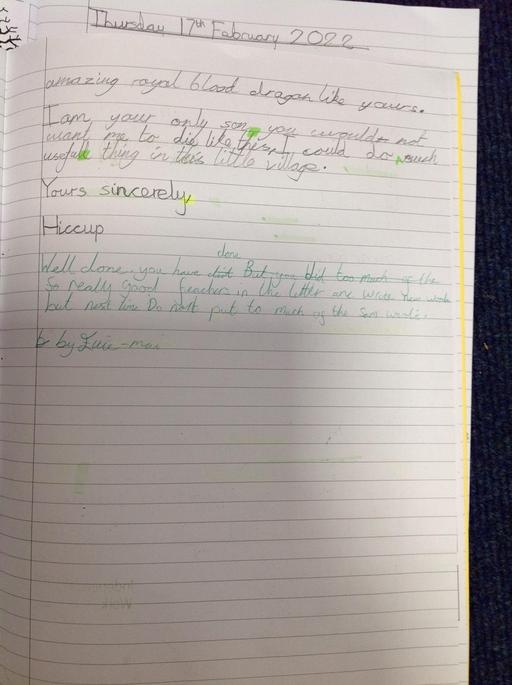 Thursday 17th February 2022
amazing royal blood dragon like yours.
I am your only son, you would not
want me to die like this, I could do much
useful thing in this little village.
Yours sincerely,
Hiccup
done
Well done, you have But you did too much of the
So really good in the letter
but next time Do not put to much of the Sam
by